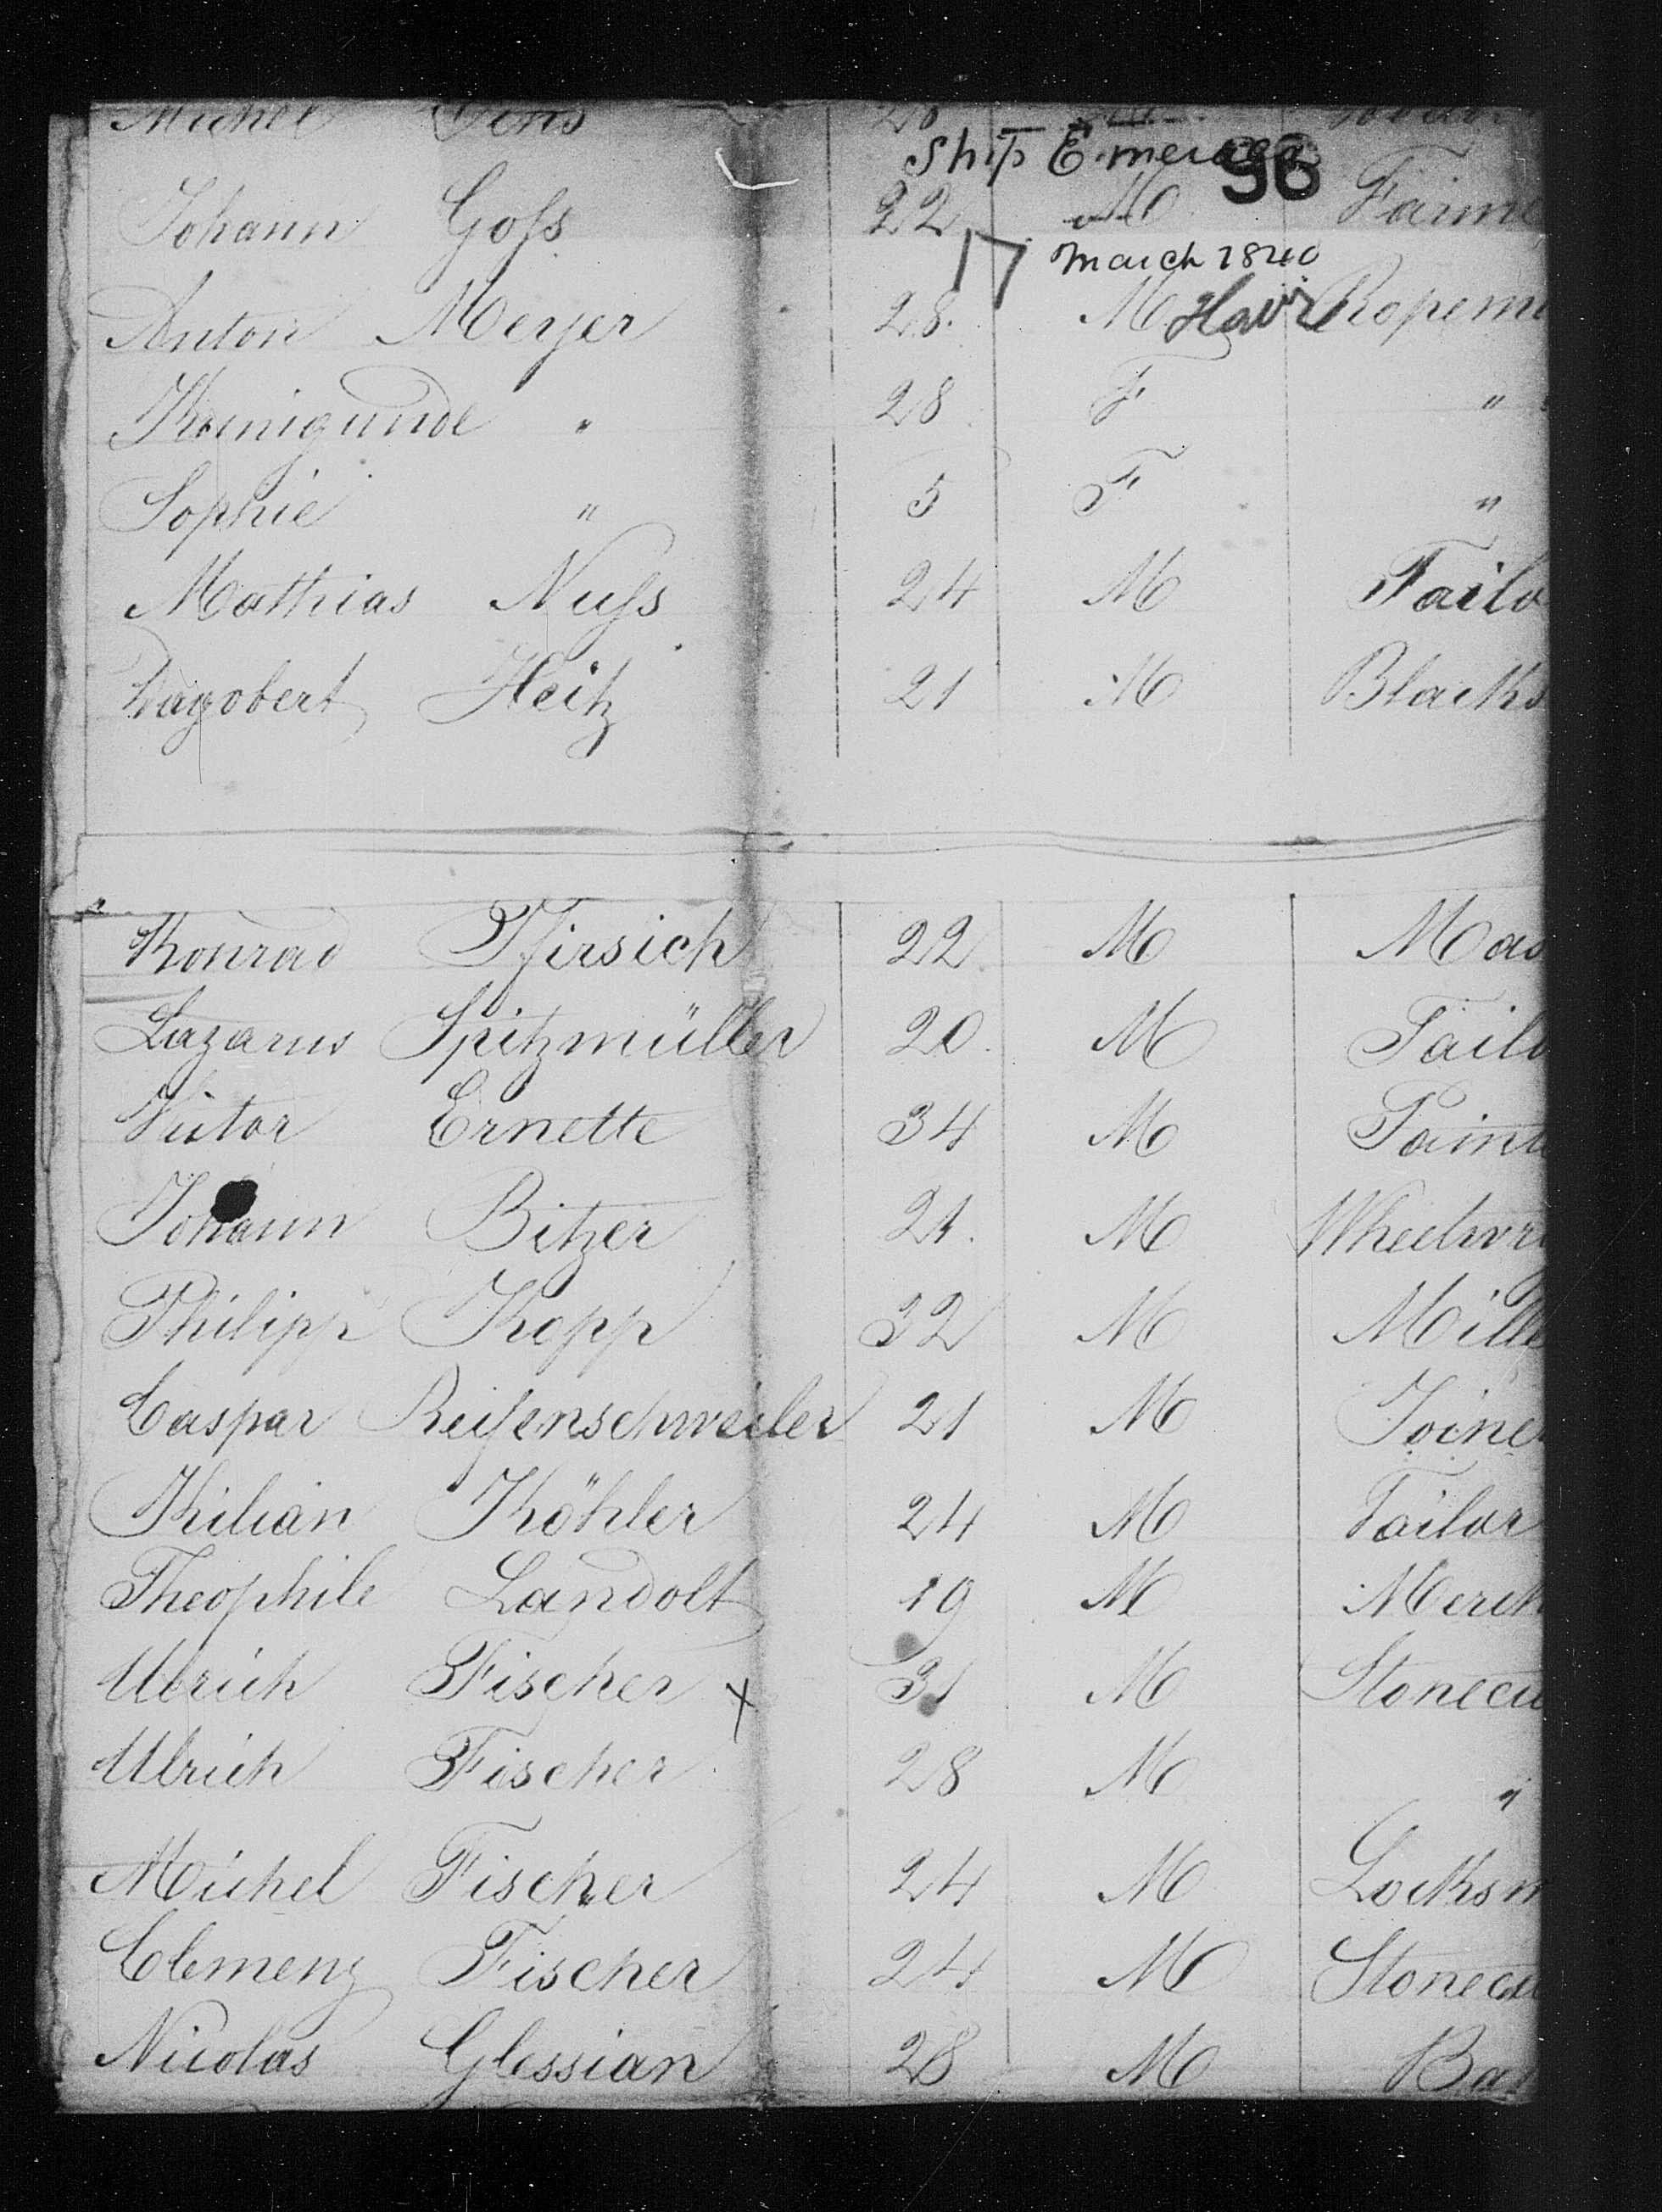 Michel 20
Ship Emerald 96
Johann Goss 22 M Farme
17 March 1840
Anton Meyer 28 M Havr Ropem
Kunigunde " 28 F "
Sophie " 5 F "
Mathias Nuss 24 M Tailo
Dagobert Heitz 21 M Blacks
Konrad Pfirsich 22 M Mas
Lazarus Spitzmüller 20 M Tailo
Victor Ernette 34 M Painte
Johann Bitzer 21 M Wheelwri
Philipp Kopp 32 M Mille
Caspar Reifenschweiler 21 M Joiner
Kilian Köhler 24 M Tailor
Theophile Landolt 19 M Merch
Ulrich Fischer x 31 M Stonecu
Ulrich Fischer 28 M "
Michel Fischer 24 M Locksm
Clemenz Fischer 24 M Stonecu
Nicolas Glessian 28 M Bar